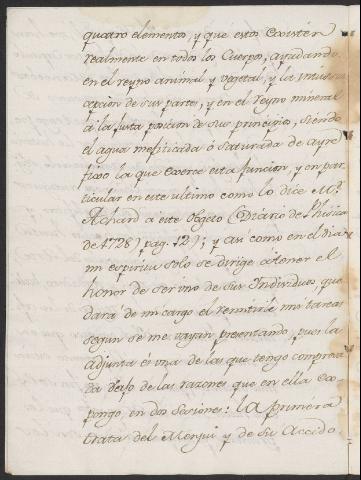 quatro elementos, y que estos existen
realmente en todos los Cuerpos, ayudando
en el reyno animal y vegetal, y la intusus
cepcion de sus partes, y en el Reyno mineral
á la Justa posicion de sus principios, siendo
el agua mefiticada ó saturada de ayre
fixo la que exerce esta funcion, y en par
ticular en este ultimo como lo dice Mr
Achard a este objeto (Diario de Phisica
de 1728) pag. 12); y asi como en el dia
mi espiritu solo se dirige á tener el
honor de ser uno de sus Individuos, que
dará de mi cargo el remitirle mis tareas
segun se me vayan presentando, pues la
adjunta és una de las que tengo compreva
da vajo de las razones que en ella ex
pongo en dos secsiones: la primera
trata del Menjui y de su Accido